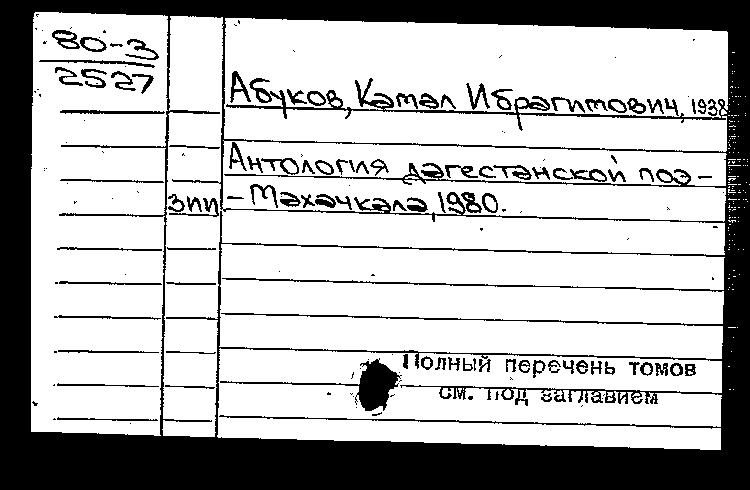 80-3
2527
Абуков, Камал Ибрагимович, 1938
Антология дагестанской поэ-
зии - Махачкала, 1980.
Полный перечень томов
см. под заглавием